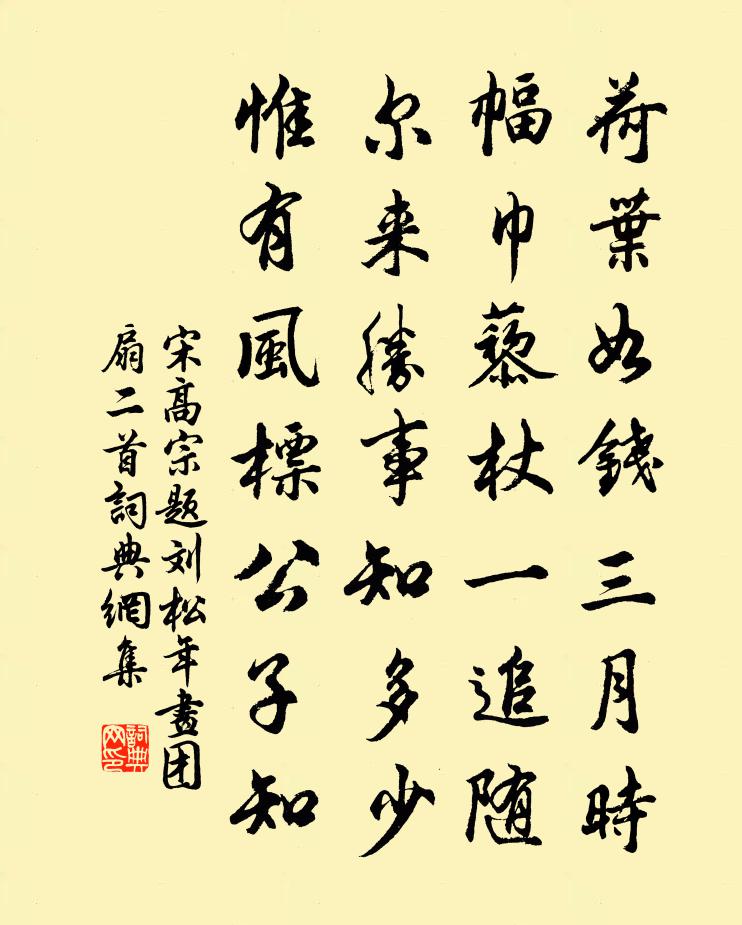 荷葉如錢三月時
幅巾藜杖一追随
尔来勝事知多少
惟有風標公子知
宋高宗题刘松年畫团
扇二首詞典網集
詞典
网印